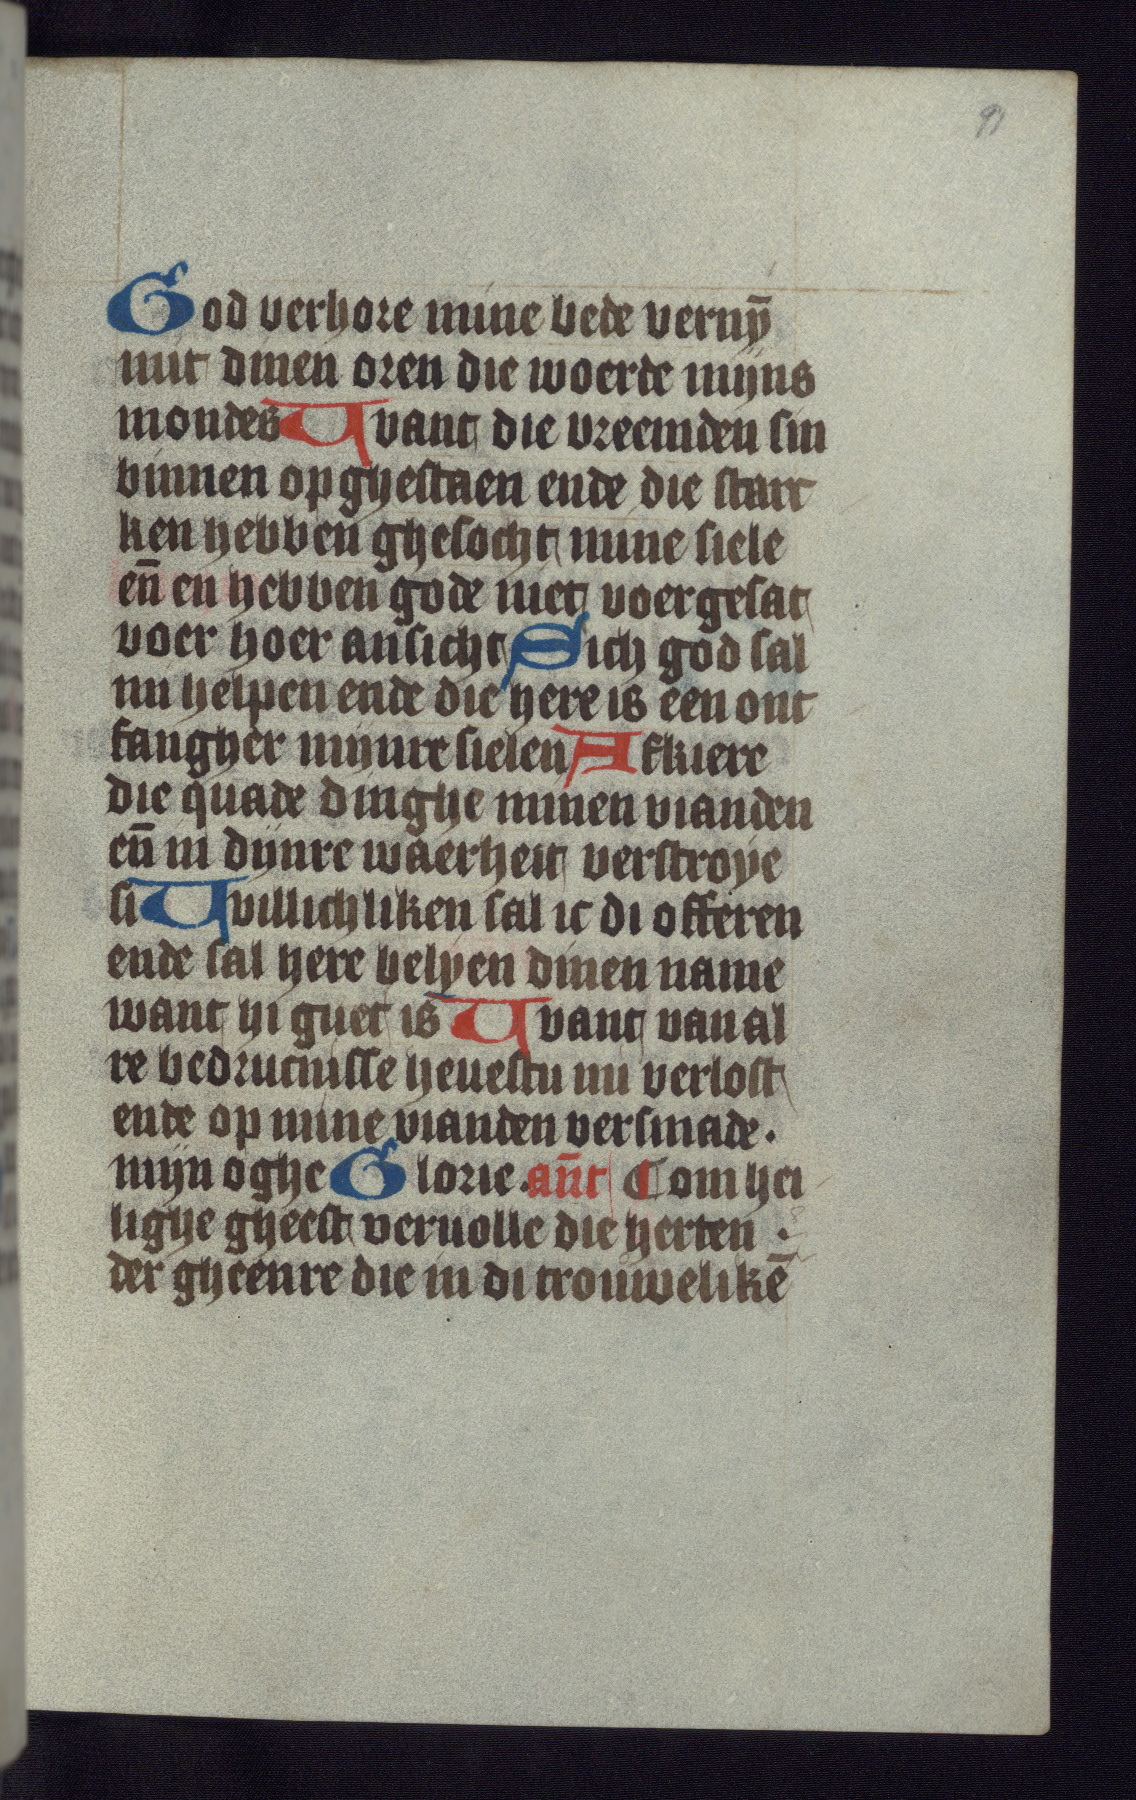 91
God verhore mine bede verny̅
mit dinen oren die woerde mijns
mondes Want die vreemden sin
binnen op ghestaen ende die starc
ken hebben ghesocht mine siele
en̅ en hebben gode niet voergesat
voer hoer ansicht Sich god sal
mi helpen ende die here is een ont
fangher mijnre sielen Afkiere
die quade dinghe minen vianden
en̅ in dijnre waerheit verstroye
si Willichliken sal ic di offeren
ende sal here belyen dinen name
want hi guet is Want van al
re bedrucnisse heuestu mi verlost
ende op mine vianden versmade.
mijn oghe Glorie. an̅t Com hei
lighe gheest veruolle die herten
der gheenre die in di trouwelike̅